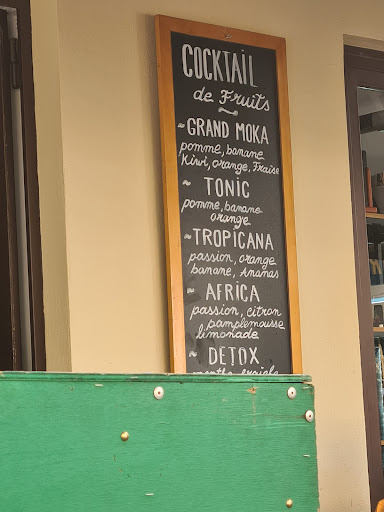 COCKTAIL
de Fruits
~GRAND MOKA
pomme, banane
Kiwi, orange, Fraise
~ TONIC
pomme, banane
orange
~TROPICANA
passion, orange
banane, Ananas
~ AFRICA
passion, citron
pamplemousse
limonade
~ DETOX